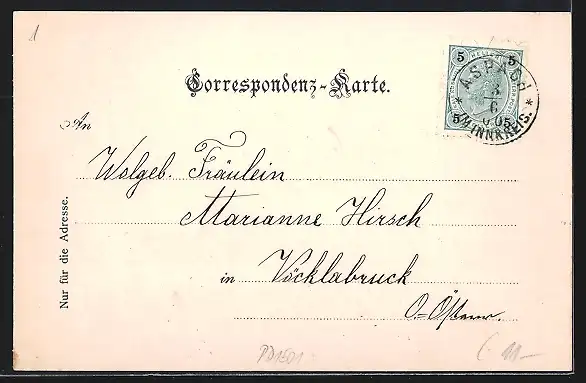 1
Correspondenz-Karte.
5 5
5
ASPACH
3
6
0.05
* (INNKREIS. *
An
Wolgeb. Fräulein
Marianne Hirsch
in Vöcklabruck
O-Österr.
Nur für die Adresse.
PD1501
11-